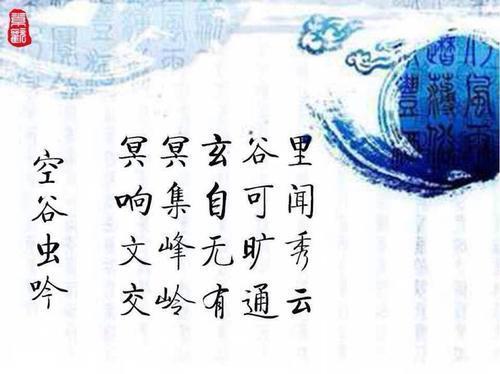 空谷虫吟
冥冥玄谷里
响集自可闻
文峰无旷秀
交岭有通云